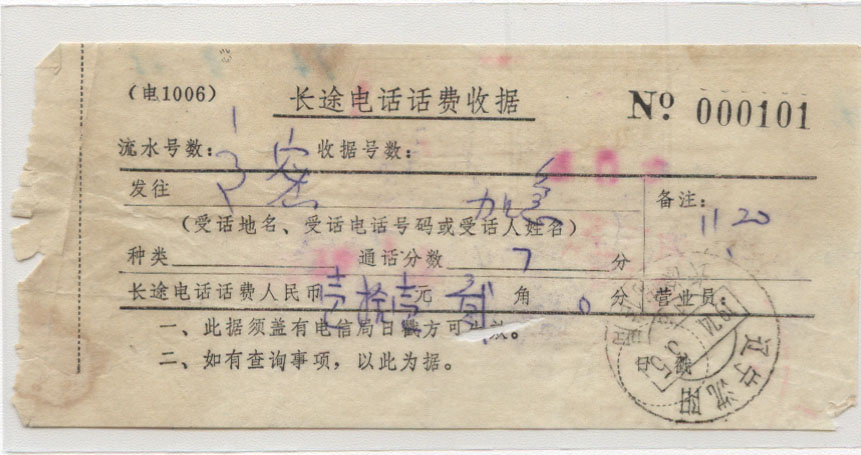 （电1006） 长途电话话费收据 № 000101
流水号数： 收据号数：
发往 加急 备注：
11.20
（受话地名、受话电话号码或受话人姓名）
种类 通话分数 7 分
长途电话话费人民币 壹拾壹 元 贰 角 0 分 营业员：
一、此据须盖有电信局日戳方可 效。
二、如有查询事项，以此为据。
辽宁沈阳
日戳